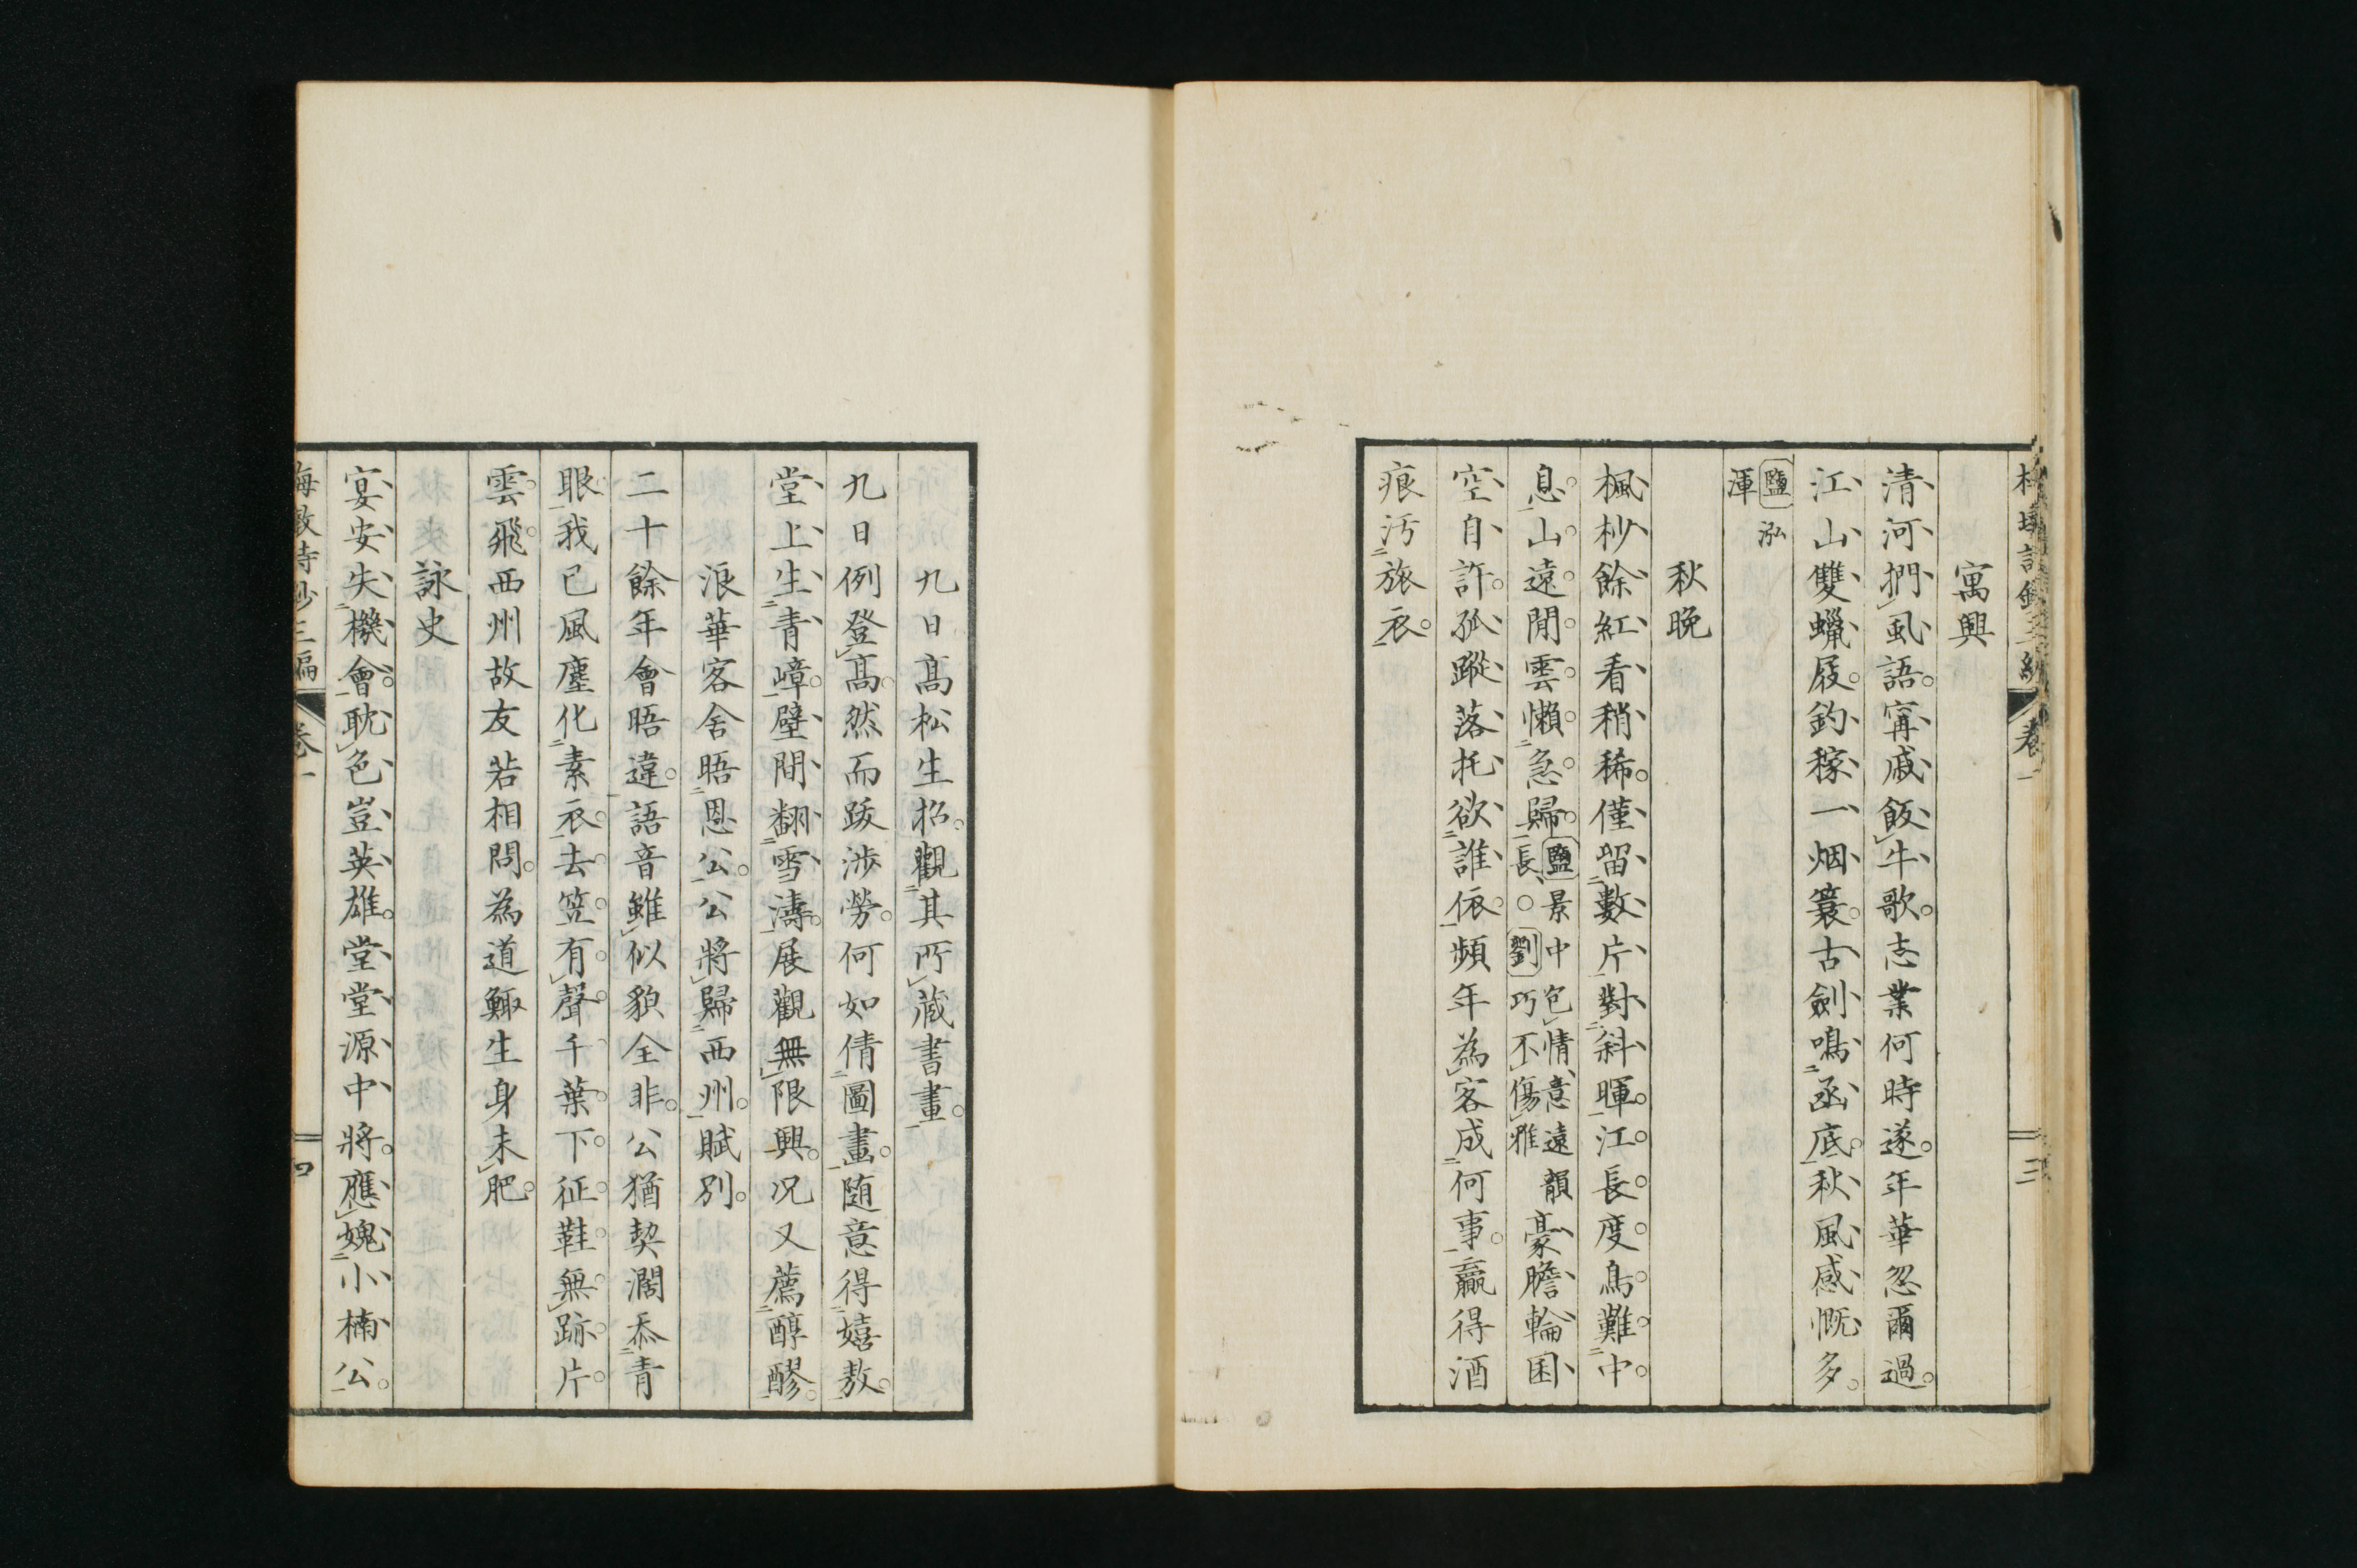 寓興
清河捫虱語甯戚飯牛歌志業何時遂年華忽爾過
江山雙蠟屐釣稼一烟簑古劍鳴函底秋風感慨多
鹽泓
渾
秋晚
楓杪餘紅看稍稀僅留數片對斜暉江長度鳥難中
息山遠閒雲懶急歸
鹽景中包情意遠韻
長○劉巧不傷雅
豪膽輪囷
空自許孤蹤落托欲誰依頻年為客成何事贏得酒
痕汚旅衣
卷一
三
九日高松生招觀其所藏書畫
九日例登高然而跋涉勞何如倩圖畫随意得嬉敖
堂上生青嶂壁間翻雪濤展觀無限興况又薦醇醪
浪華客舍晤恩公公將歸西州賦別
二十餘年會晤違語音雖似貌全非公猶契濶忝青
眼我已風塵化素衣去笠有聲千葉下征鞋無跡片
雲飛西州故友若相問為道鯫生身未肥
詠史
宴安失機會耽色豈英雄堂堂源中將應媿小楠公
三編
卷一
四